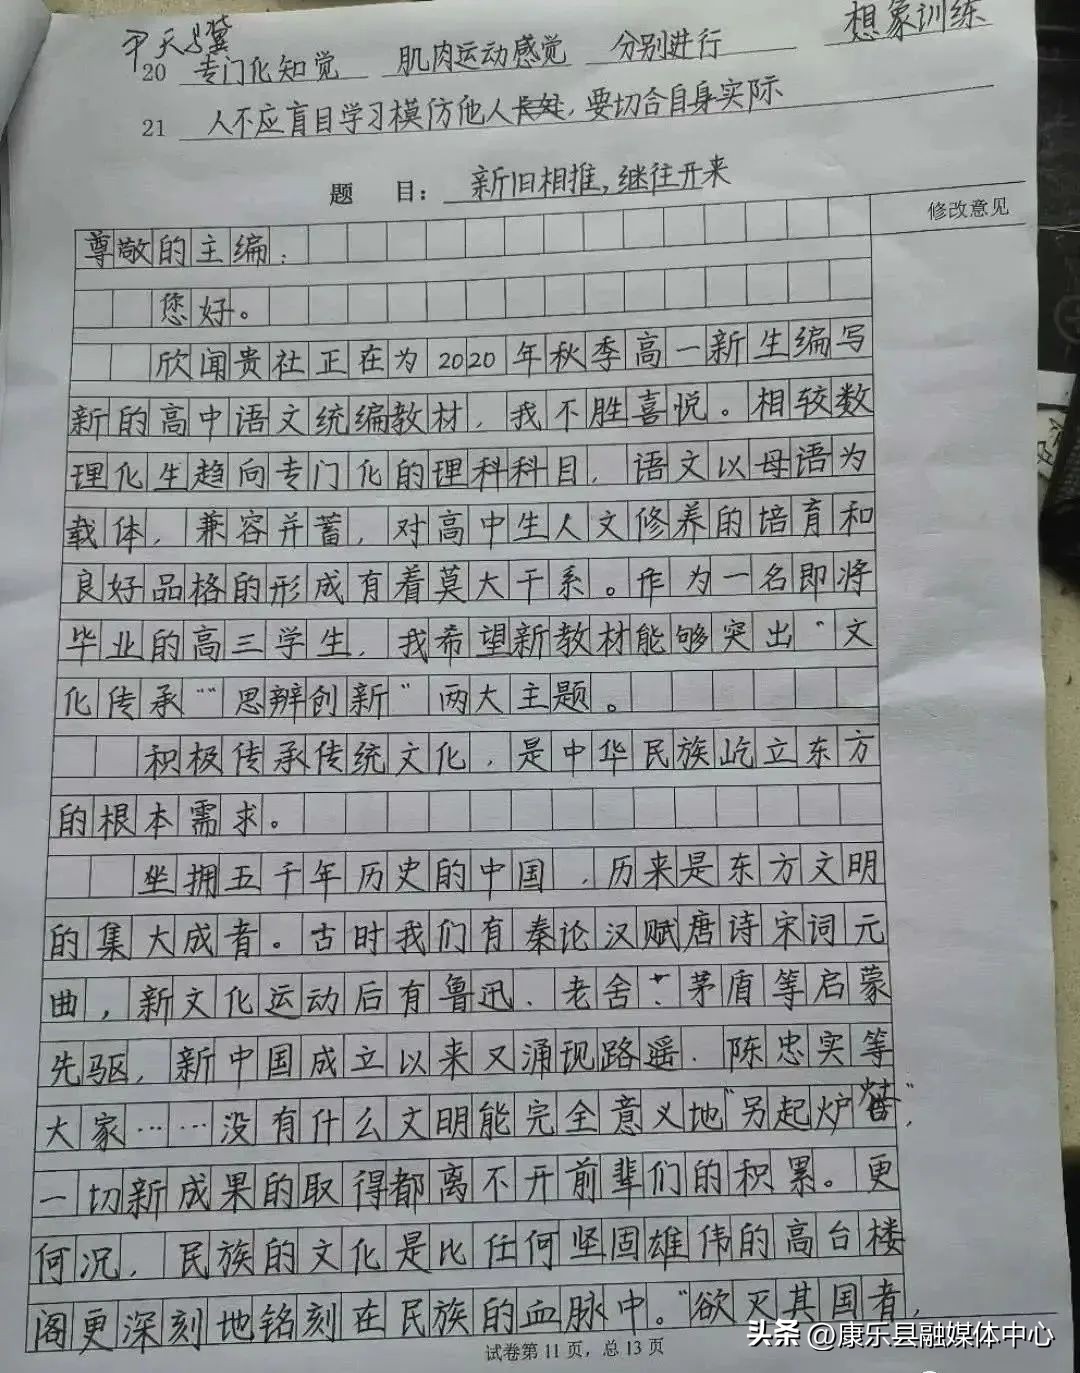 尹天骥
20 专门化知觉 肌肉运动感觉 分别进行 想象训练
21 人不应盲目学习模仿他人长处,要切合自身实际
题 目: 新旧相推,继往开来
修改意见
尊敬的主编:
您好。
欣闻贵社正在为2020年秋季高一新生编写
新的高中语文统编教材,我不胜喜悦。相较数
理化生趋向专门化的理科科目,语文以母语为
载体,兼容并蓄,对高中生人文修养的培育和
良好品格的形成有着莫大干系。作为一名即将
毕业的高三学生,我希望新教材能够突出“文
化传承”“思辨创新”两大主题。
积极传承传统文化,是中华民族屹立东方
的根本需求。
坐拥五千年历史的中国,历来是东方文明
的集大成者。古时我们有秦论汉赋唐诗宋词元
曲,新文化运动后有鲁迅、老舍、茅盾等启蒙
先驱,新中国成立以来又涌现路遥、陈忠实等
大家……没有什么文明能完全意义地“另起炉灶”,
一切新成果的取得都离不开前辈们的积累。更
何况,民族的文化是比任何坚固雄伟的高台楼
阁更深刻地铭刻在民族的血脉中。“欲灭其国者,
试卷第11页,总13页
头条 @康乐县融媒体中心